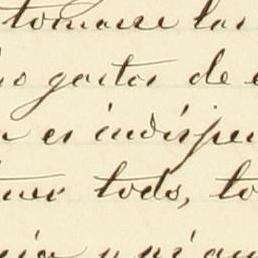 tomarse los
gastos de
es indispen
todo, to
y ni